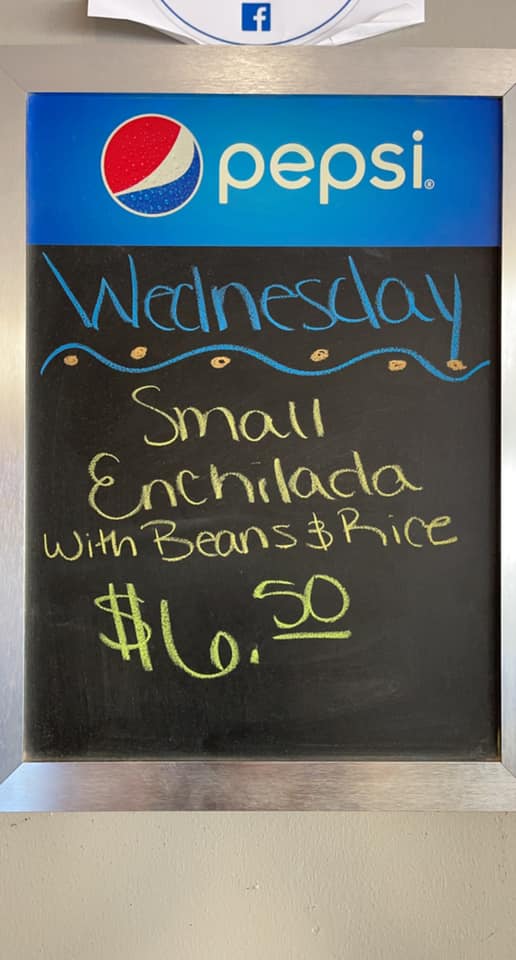 f
pepsi®
Wednesday
Small
Enchilada
with Beans & Rice
$6.50